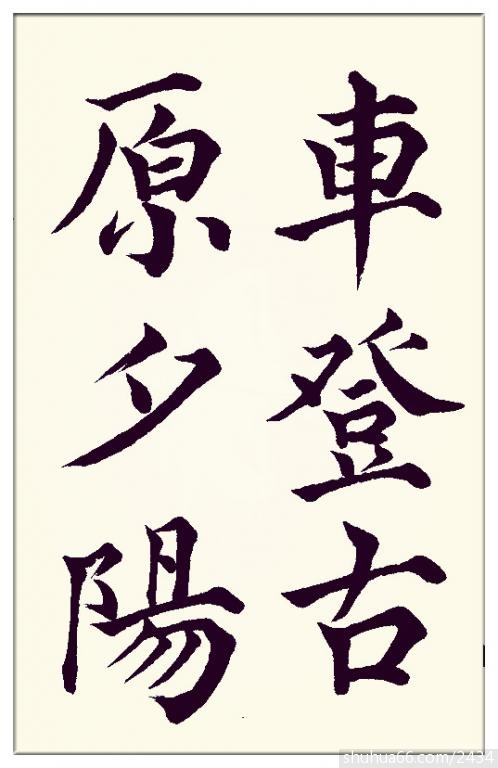 車登古
原夕陽
shuhua66.com/2434